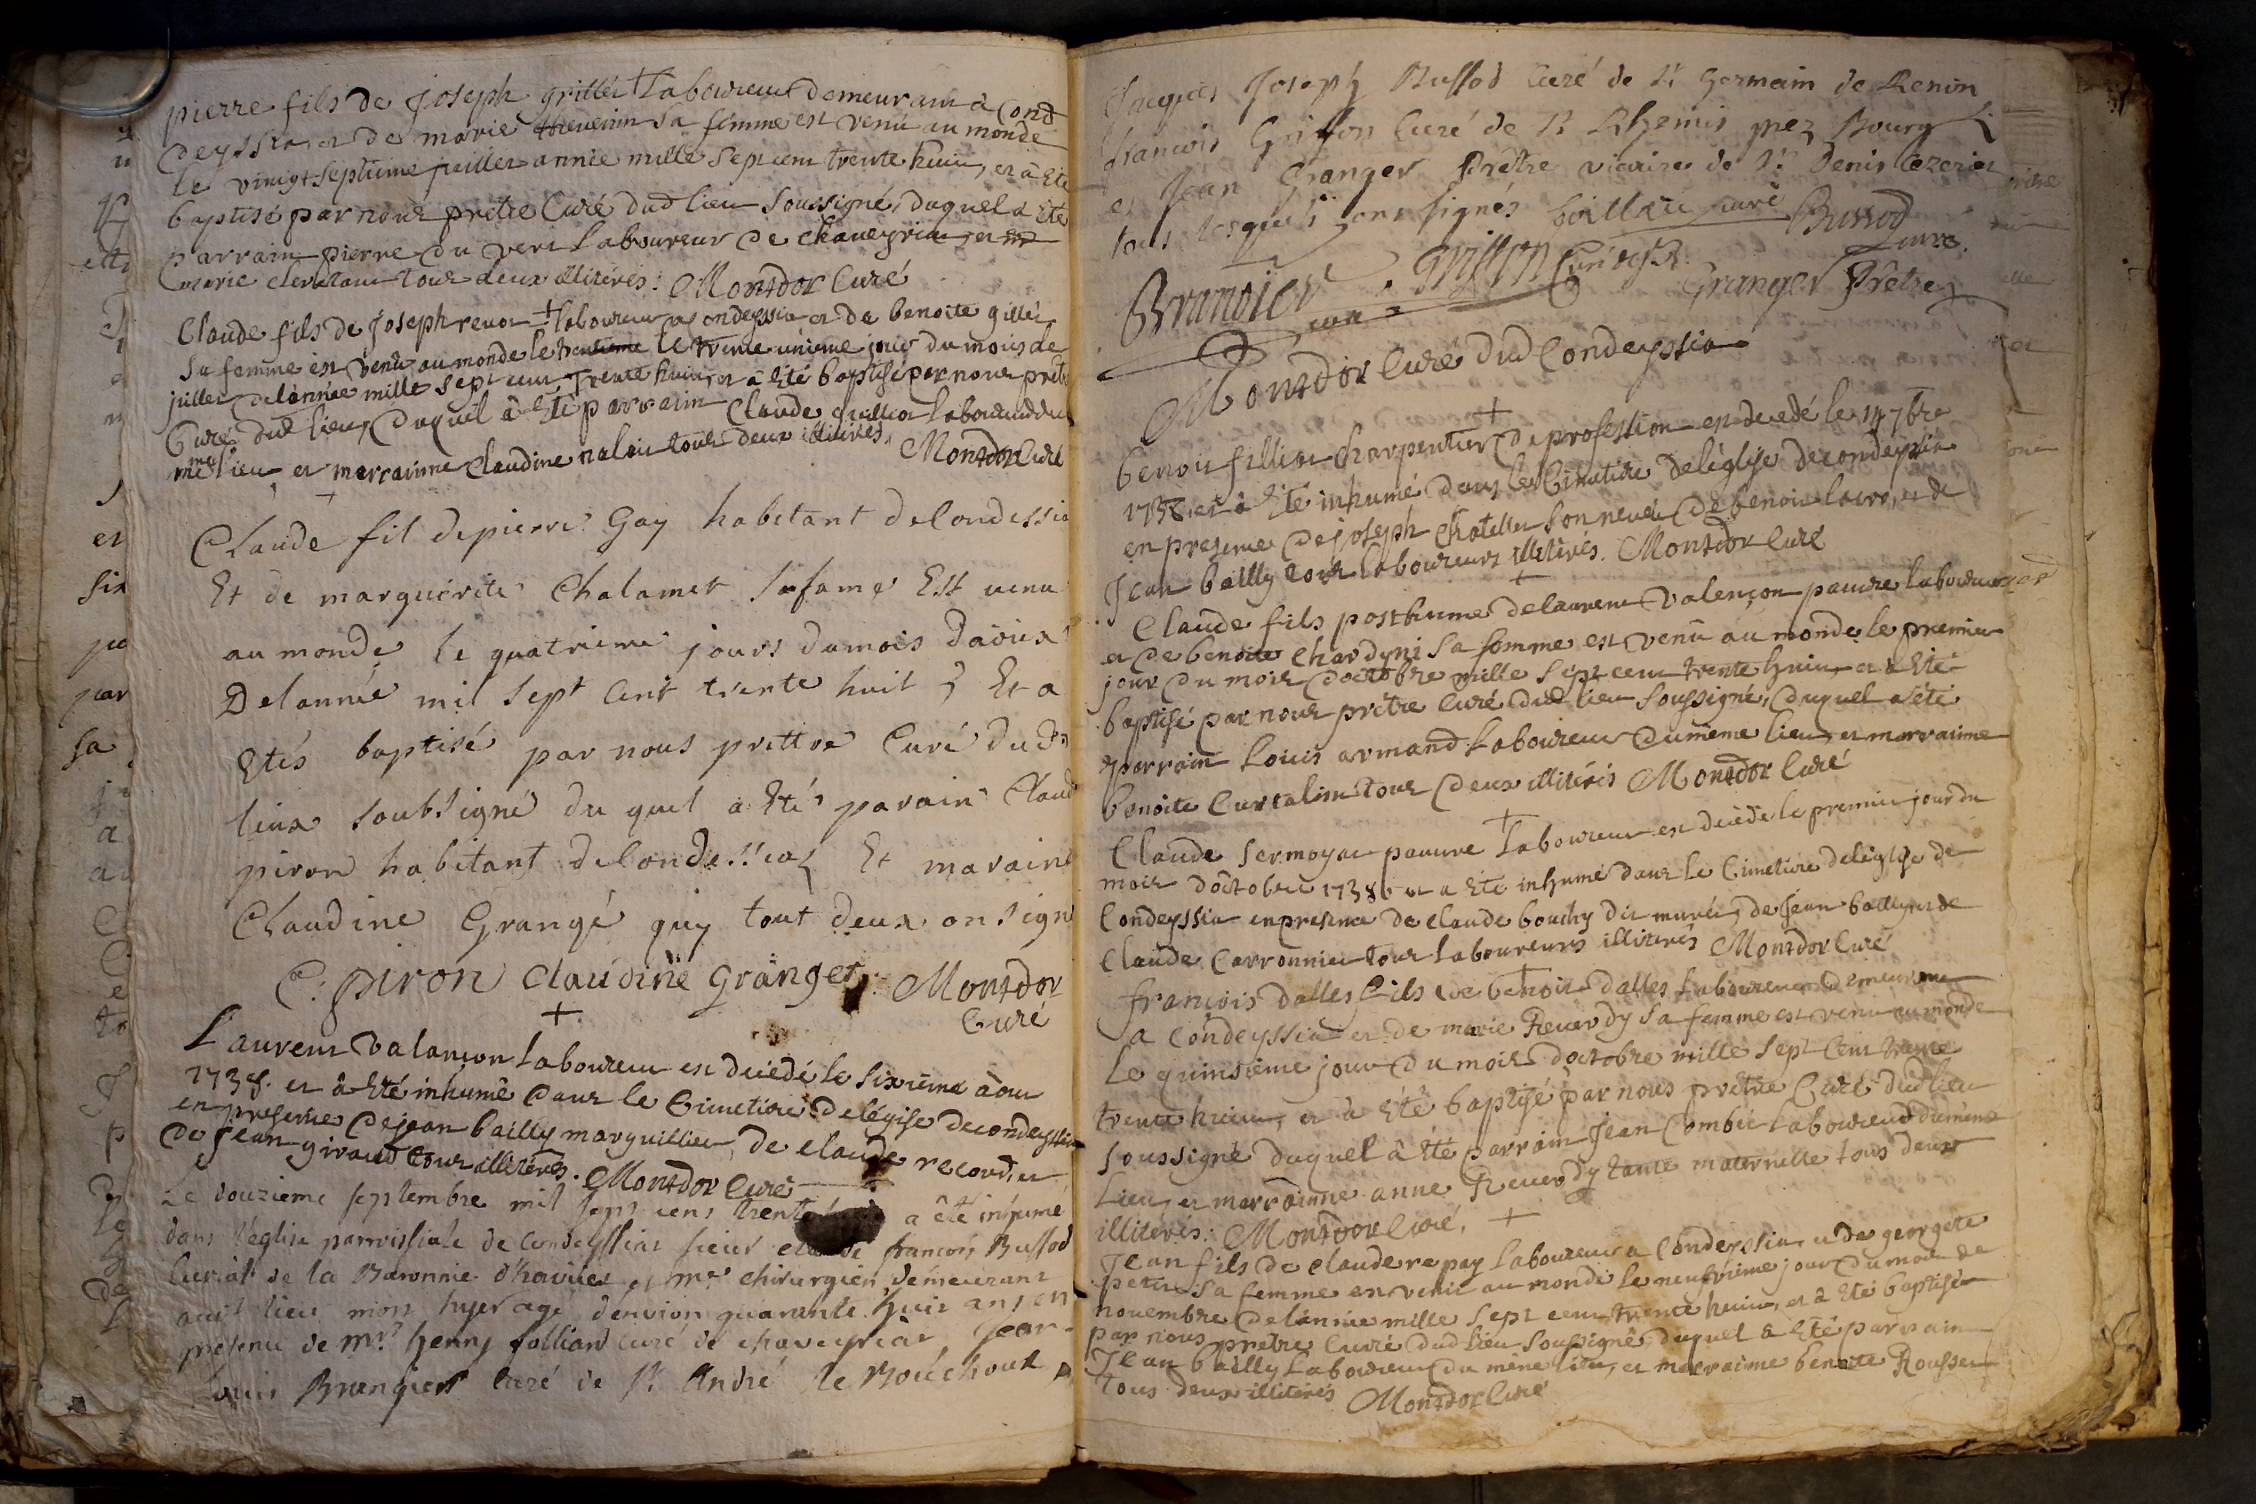 pierre fils de Joseph grillet Laboureur demeurant a Cond
deyssia, et de marie thevenin sa femme est venu au monde
le vingt septieme juillet année mille sept cent trente huit, et à été
baptisé par nous prêtre Curé dud lieu soussigné, duquel a été
parrain pierre du vert Laboureur de chaveyria et
marie cler tous deux illiterés. Montdor Curé
Claude fils de Joseph revor laboureur a Condeyssia et de benoite gillet
sa femme est venu au monde le trentieme le trente unieme jour du mois de
juillet de lannée mille sept cent trente huit, et à été baptisé par nous prêtre
Curé dud lieu, duquel à été parrain Claude laboureur dud
même lieu et marrainne Claudine nalou tous deux illiterés. Montdor Curé
Claude fil de pierre Gay habitant de Londessia
Et de marguerite Chalamet sa fame Est venu
au monde le quatrieme jours du mois daoux
De lannée mil sept Cent trente huit ; Et a
Etés baptisé par nous prettre Curé dud
lieux soubsigné du quel a Eté parain Claud
piron habitant de Londessiaz Et maraine
Claudine Grangé quy tout deux on signe
C: piron Claudine Granget Montdor
Curé
Laurent valançon laboureur est décédé le sixieme aout
1738. et à été inhumé dans le Cimetiere de légise de condeyssia
en presence de jean bailly marguillier, de claude record, et
de jean giraud tous illiterés. Montdor Curé
Le douzieme septembre mil sept cens trente a été inhumé
dans l'église parroissiale de Condeyssiat sieur claude françois Bussod
Curial de la Baronnie d'havuer et me chirurgien demeurant
aud lieu mort hyer agé d'environ quarante huit ans en
presence de Mre henry follian curé de chaveyriat Jean-
Louis Brangier Curé de St André le Bouchoux
Jacques Joseph Bussod Curé de St Germain de Renon
francois Griffon Curé de St Rhemis prez Bourg
et Jean Granger Prêtre vicaire de St Denis Cezeriat
tous lesquels ont signés foilliand curé Bussod
curé.
Brangier . Griffon Curé de St R. Granger Prêtre
curé
Montdor Curé dud Condeyssia
benoit fillion Charpentier de profession est décédé le 14 7bre
1738, et à été inhumé dans le Cimetiere de léglise de condeyssia
en presence de joseph Chatellet son neveu de benoit lacro, et de
Jean bailly tous laboureurs illiterés. Montdor Curé
Claude fils posthume de laurent valençon pauvre laboureur
et de benoite Chardyni sa femme est venu au monde le premier
jour du mois doctobre mille sept cent trente huit, et a été
baptisé par nous prêtre Curé dud lieu soussigné, duquel a été
parrain Louis armand laboureur du même lieu, et marrainne
benoite Curtalin tous deux illiterés Montdor Curé
Claude Sermoyat pauvre laboureur est décédé le premier jour du
mois doctobre 1738 et a été inhumé dans le Cimetiere de léglise de
Condeyssia en presence de claude bouchy dit muret, de Jean bailly et de
Claude Carronnier tous laboureurs illiterés Montdor Curé
françois dalles fils de benoit dalles laboureur demeurant
a Condeyssia et de marie Reverdy sa femme est venu au monde
Le quinsieme jour du mois doctobre mille sept Cent
trente huit, et à été baptisé par nous prêtre Curé dud lieu
soussigné duquel à été parrain Jean Combet laboureur du même
Lieu, et marrainne anne Reverdy tante maternelle tous deux
illiterés. Montdor Curé.
Jean fils de claude repay laboureur a Condeyssia, et de georgete
petit sa femme est venu au monde le neufvieme jour du mois de
novembre de lannée mille sept cent trente huit, et à été baptisé
par nous prêtre Curé dud lieu soussigné, duquel a été parrain
Jean bailly Laboureur du même lieu, et marrainne benoite Rousset
tous deux illiterés Montdor Curé